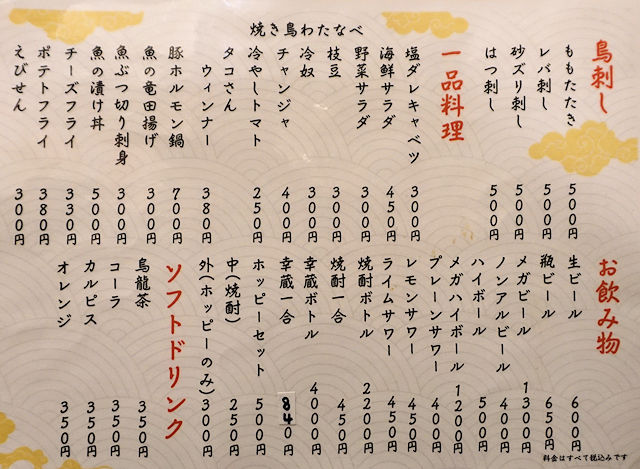 焼き鳥わたなべ
鳥刺し
ももたたき 500円
レバ刺し 500円
砂ズリ刺し 500円
はつ刺し 500円
一品料理
塩ダレキャベツ 300円
海鮮サラダ 450円
野菜サラダ 300円
枝豆 300円
冷奴 300円
チャンジャ 400円
冷やしトマト 250円
タコさん
ウィンナー 380円
豚ホルモン鍋 700円
魚の竜田揚げ 300円
魚ぶつ切り刺身 300円
魚の漬け丼 500円
チーズフライ 330円
ポテトフライ 380円
えびせん 300円
お飲み物
生ビール 600円
瓶ビール 650円
メガビール 1300円
ノンアルビール 400円
ハイボール 500円
メガハイボール 1200円
プレーンサワー 400円
レモンサワー 450円
ライムサワー 450円
焼酎ボトル 2200円
焼酎一合 450円
幸蔵ボトル 4000円
幸蔵一合 840円
ホッピーセット 500円
中(焼酎) 250円
外(ホッピーのみ) 300円
ソフトドリンク
烏龍茶 350円
コーラ 350円
カルピス 350円
オレンジ 350円
料金はすべて税込みです